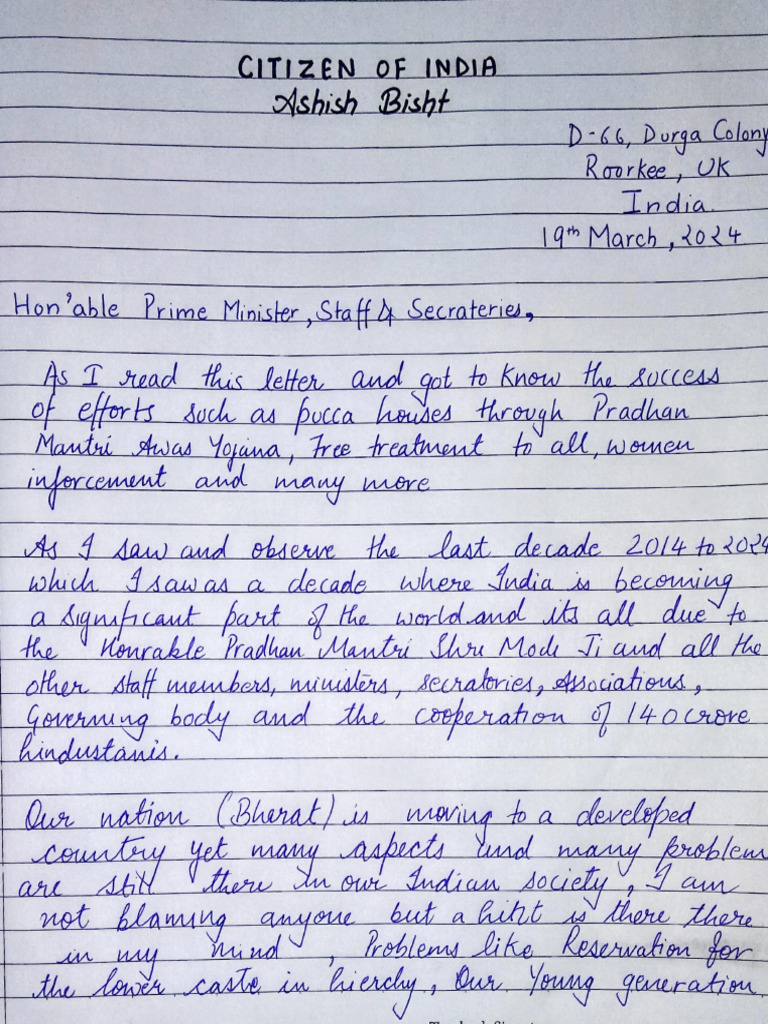 CITIZEN OF INDIA
Ashish Bisht
D-66, Durga Colony
Roorkee, UK
India.
19th March, 2024
Hon'able Prime Minister, Staff & Secrateries,
As I read this letter and got to know the success
of efforts such as pucca houses through Pradhan
Mantri Awas Yojana, Free treatment to all, women
inforcement and many more
As I saw and observe the last decade 2014 to 2024
which I saw as a decade where India is becoming
a significant part of the world and its all due to
the Honrable Pradhan Mantri Shri Modi Ji and all the
other staff members, ministers, secratories, Associations,
Governing body and the cooperation of 140 crore
hindustanis.
Our nation (Bharat) is moving to a developed
country yet many aspects and many problem
are still there in our Indian society, I am
not blaming anyone but a hint is there there
in my mind, Problems like Reservation for
the lower caste in hierchy, Our Young generation